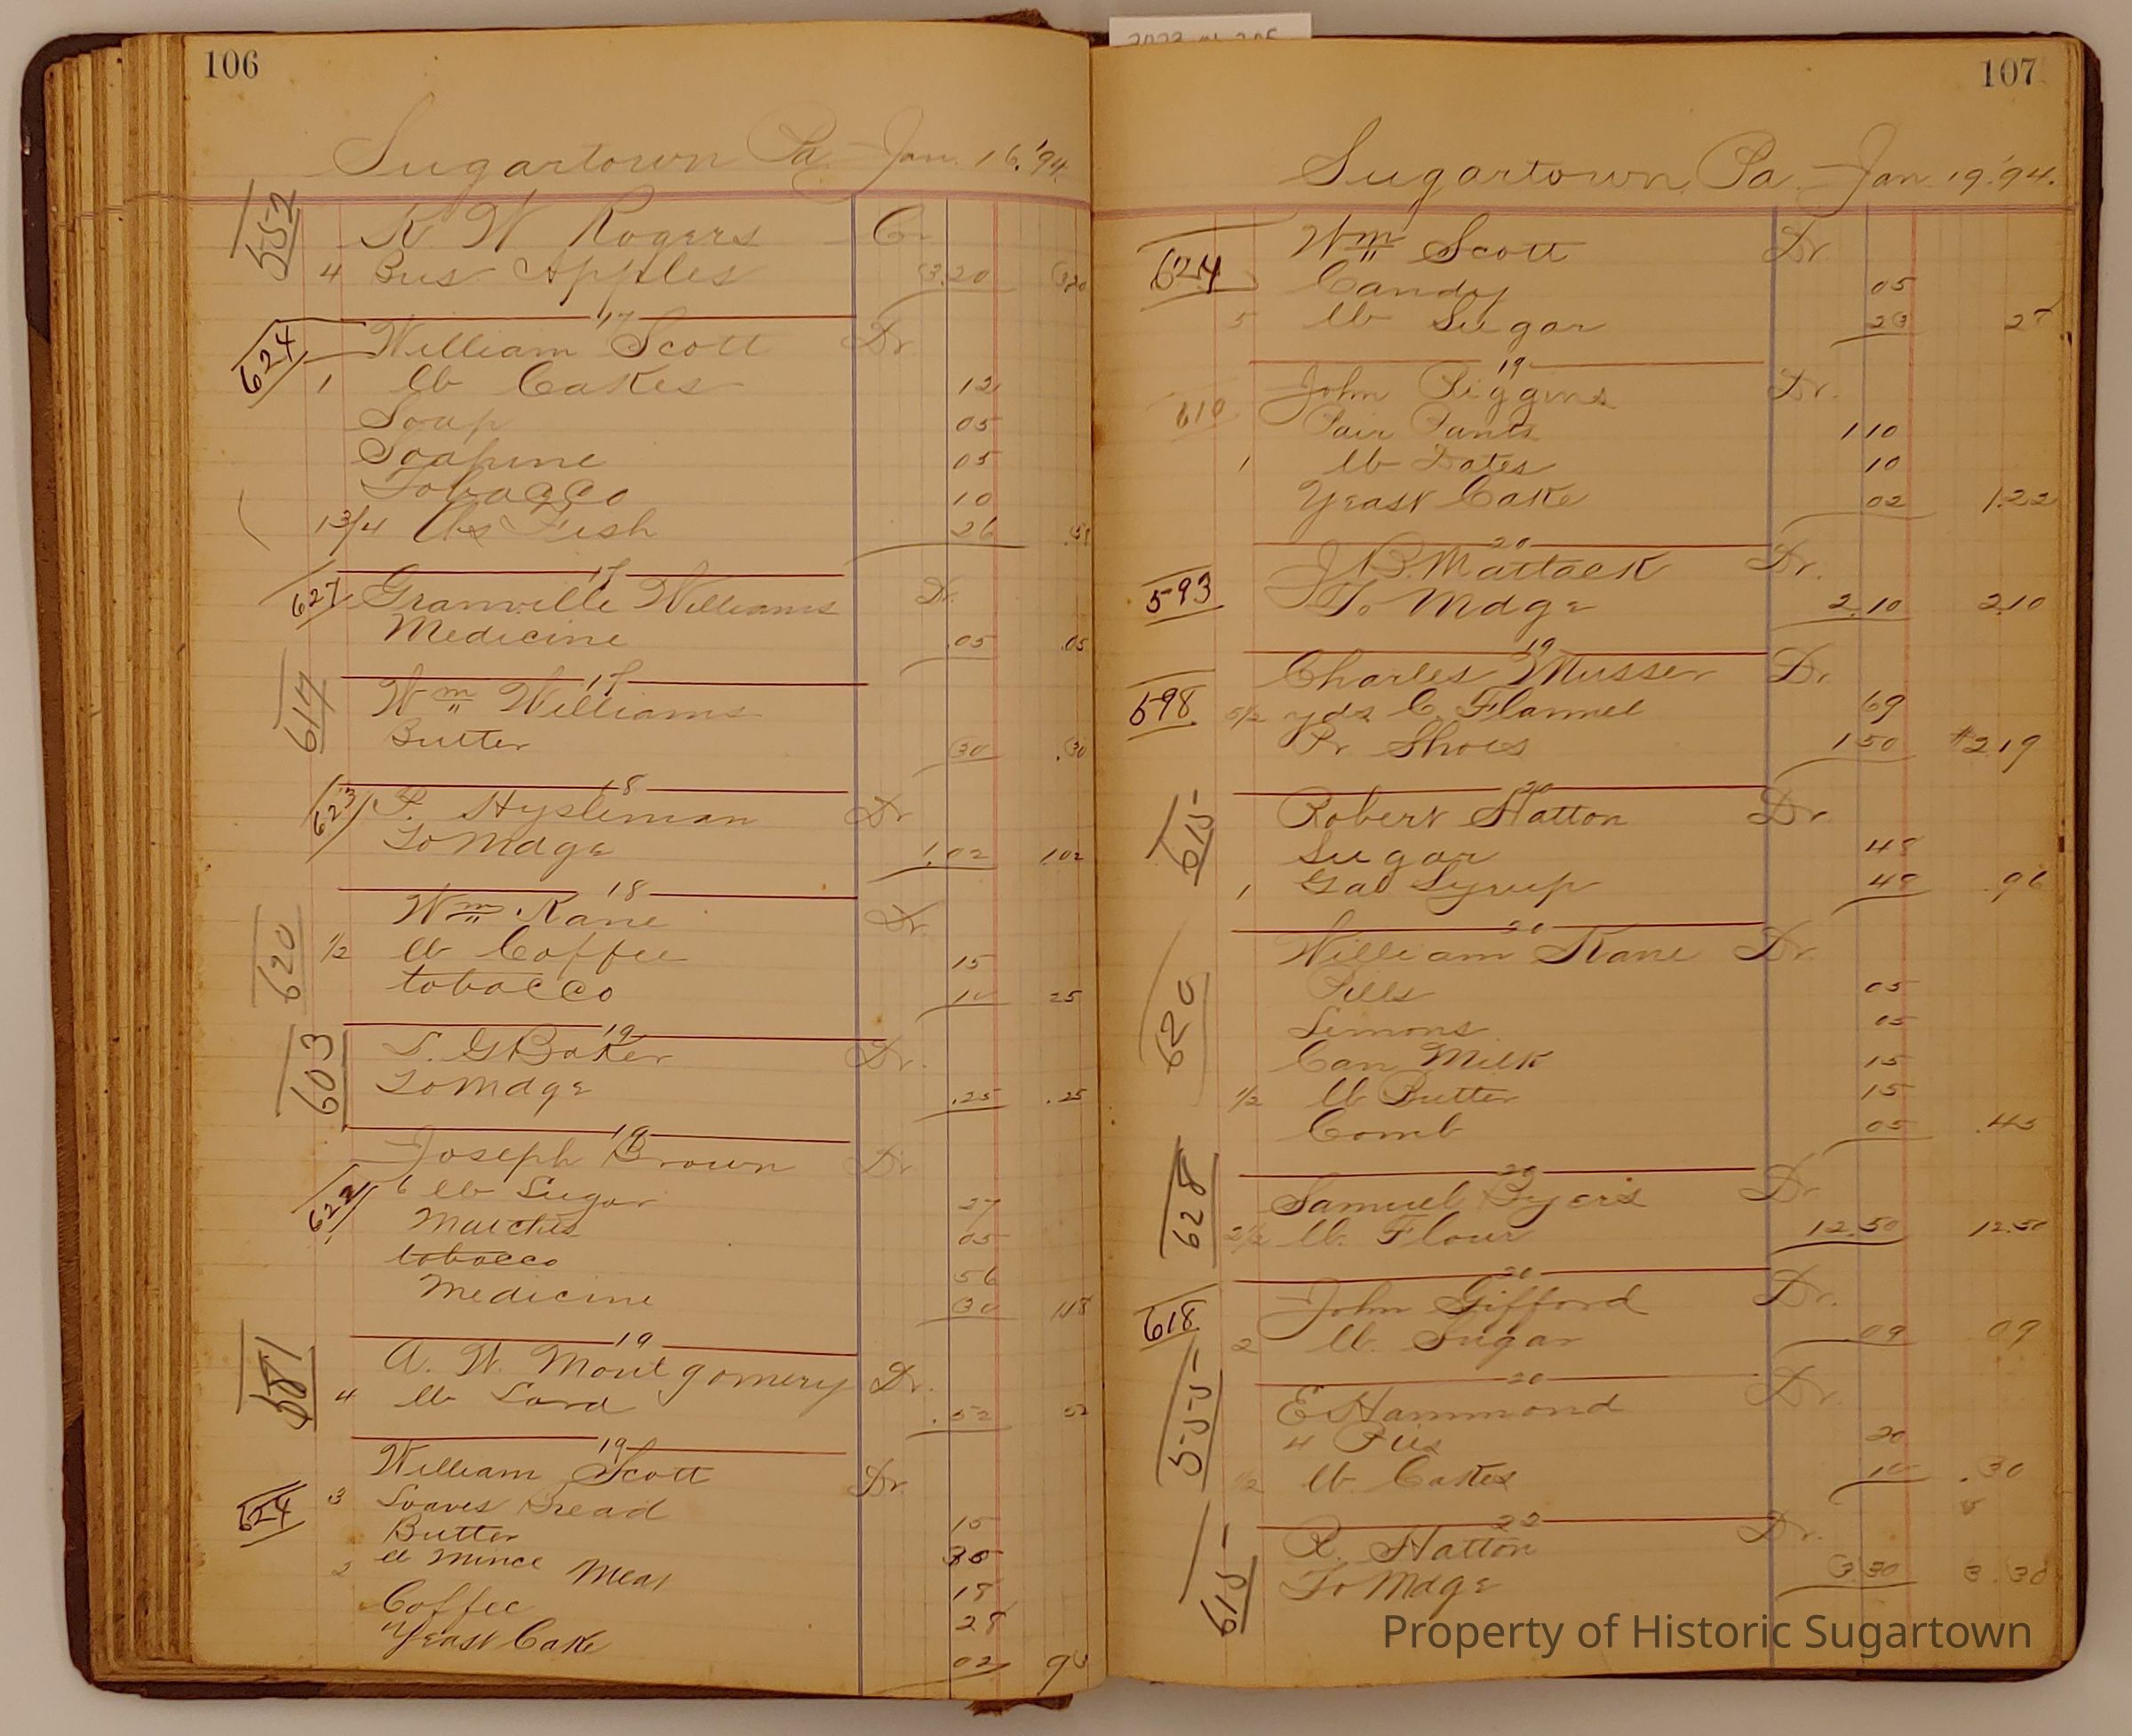 106
Sugartown Pa Jan. 16. '94.
552
K W Rogers Cr
4 Bus Apples 3.20 3.20
17
624 William Scott Dr
1 lb Cakes 12
Soap 05
Soapine 05
Tobacco 10
1 3/4 lbs Fish 26 .58
17
627 Granville Williams Dr.
Medicine .05 .05
17
617 Wm Williams
Butter 30 .30
18
623 Hysleman Dr
To Mdge 1.02 1.02
18
620 Wm Kane Dr.
1/2 lb Coffee 15
tobacco 10 25
19
603 S. G Baker Dr.
To Mdge .25 .25
19
Joseph Brown Dr
622 6 lb Sugar 27
Matches 05
tobacco 56
Medicine 30 118
19
A. W. Montgomery Dr.
4 lb Lard .52 52
19
William Scott Dr.
624 3 Loaves Bread 15
Butter 30
2 lb Mince Meat 18
Coffee 28
Yeast Cake 02 93
107
Sugartown, Pa. Jan 19. '94.
Wm Scott Dr.
624 Candy 05
5 lb Sugar 23 28
19
John Piggins Dr.
610 Pair Pants 1 10
1 lb Dates 10
Yeast Cake 02 1.22
20
J. B. Mattack Dr.
593 To Mdge 2.10 2.10
19
Charles Musser Dr.
598 5 1/2 yds C. Flannel 69
Pr. Shoes 1 50 #2.19
20
615 Robert Hatton Dr.
Sugar 48
1 Gal Syrup 48 .96
20
William Kane Dr.
620 Pills 05
Lemons 05
Can Milk 15
1/2 lb Butter 15
Comb 05 .45
20
628 Samuel Byers Dr
2 1/2 lb. Flour 12.50 12.50
20
618 John Gifford Dr.
2 lb. Sugar 09 09
20
555 E Hammond Dr.
4 Pies 20
1/2 lb. Cakes 10 .30
22
615 R. Hatton Dr.
To Mdge 3.30 3.30
Property of Historic Sugartown